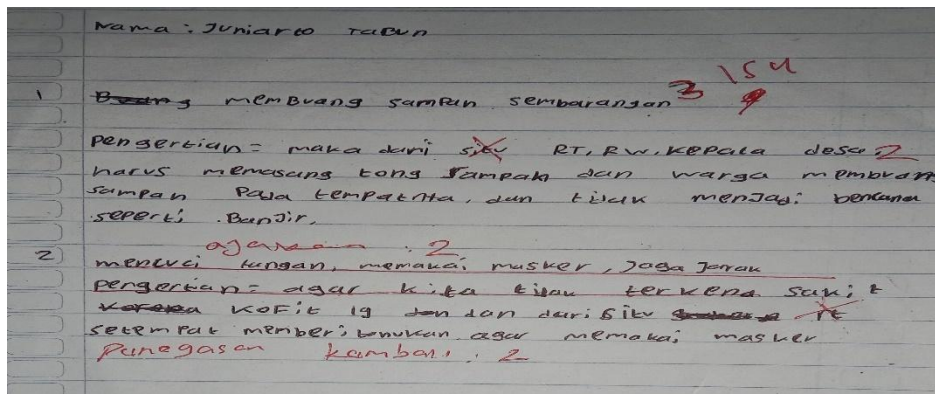 Nama : Juniarto
154
1 membuang sampah sembarangan 3
pengertian = maka dari situ RT, RW, kepala desa 2
harus memasang tong sampah dan warga membuang
sampah pada tempatnya, dan tidak menjadi bencana
seperti Banjir.
2
2 mencuci tangan, memakai masker, Jaga Jarak
pengertian = agar kita tidak terkena sakit
karena kofit 19 dan dari situ rt
setempat memberi agar memakai masker
Panegasan kambali : 2